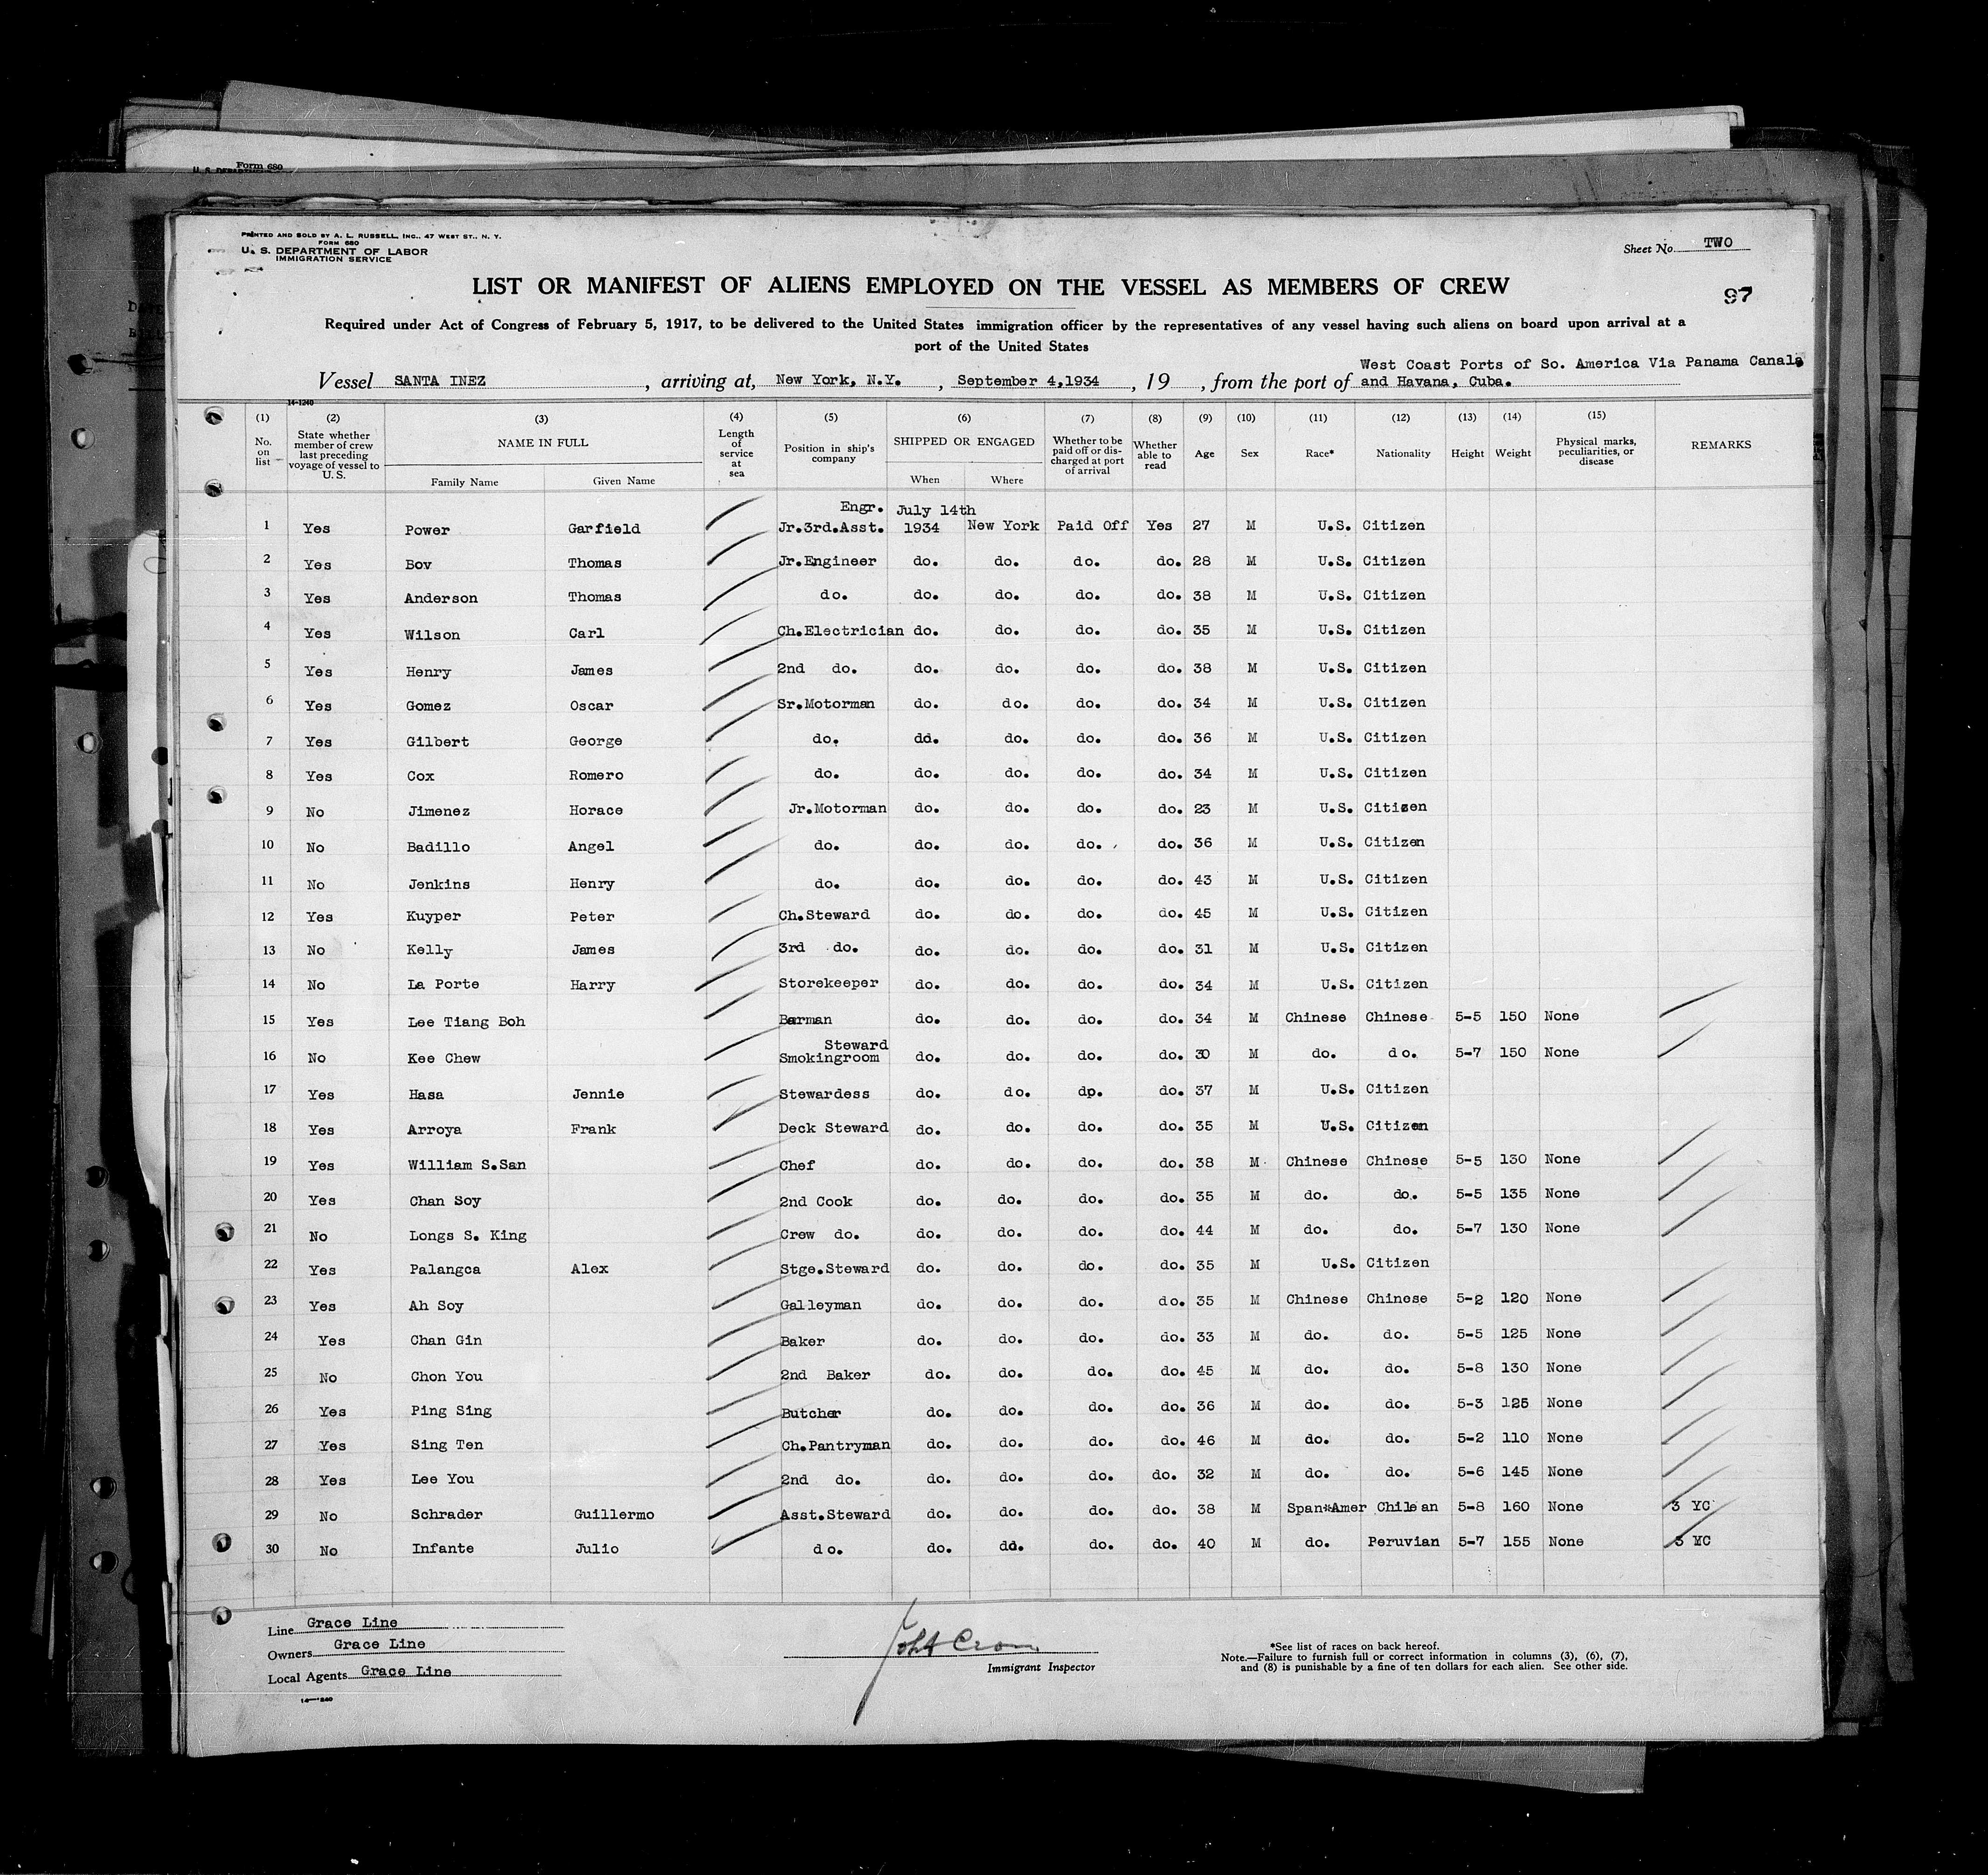 Form 680
PRINTED AND SOLD BY A. L. RUSSELL, INC., 47 WEST ST., N. Y.
FORM 680
U. S. DEPARTMENT OF LABOR
IMMIGRATION SERVICE
Sheet No. TWO
LIST OR MANIFEST OF ALIENS EMPLOYED ON THE VESSEL AS MEMBERS OF CREW
97
Required under Act of Congress of February 5, 1917, to be delivered to the United States immigration officer by the representatives of any vessel having such aliens on board upon arrival at a
port of the United States
West Coast Ports of So. America Via Panama Canal,
Vessel SANTA INEZ , arriving at, New York, N.Y. , September 4,1934 , 19 , from the port of and Havana, Cuba.
14-1240
(1) (2) (3) (4) (5) (6) (7) (8) (9) (10) (11) (12) (13) (14) (15)
No. on list State whether member of crew last preceding voyage of vessel to U. S. NAME IN FULL Length of service at sea Position in ship's company SHIPPED OR ENGAGED Whether to be paid off or discharged at port of arrival Whether able to read Age Sex Race* Nationality Height Weight Physical marks, peculiarities, or disease REMARKS
Family Name Given Name When Where
Engr. July 14th
1 Yes Power Garfield Jr.3rd.Asst. 1934 New York Paid Off Yes 27 M U.S. Citizen
2 Yes Bov Thomas Jr.Engineer do. do. do. do. 28 M U.S. Citizen
3 Yes Anderson Thomas do. do. do. do. do. 38 M U.S. Citizen
4 Yes Wilson Carl Ch.Electrician do. do. do. do. 35 M U.S. Citizen
5 Yes Henry James 2nd do. do. do. do. do. 38 M U.S. Citizen
6 Yes Gomez Oscar Sr.Motorman do. do. do. do. 34 M U.S. Citizen
7 Yes Gilbert George do. do. do. do. do. 36 M U.S. Citizen
8 Yes Cox Romero do. do. do. do. do. 34 M U.S. Citizen
9 No Jimenez Horace Jr.Motorman do. do. do. do. 23 M U.S. Citizen
10 No Badillo Angel do. do. do. do. do. 36 M U.S. Citizen
11 No Jenkins Henry do. do. do. do. do. 43 M U.S. Citizen
12 Yes Kuyper Peter Ch.Steward do. do. do. do. 45 M U.S. Citizen
13 No Kelly James 3rd do. do. do. do. do. 31 M U.S. Citizen
14 No La Porte Harry Storekeeper do. do. do. do. 34 M U.S. Citizen
15 Yes Lee Tiang Boh Barman do. do. do. do. 34 M Chinese Chinese 5-5 150 None
Steward
16 No Kee Chew Smokingroom do. do. do. do. 30 M do. do. 5-7 150 None
17 Yes Hasa Jennie Stewardess do. do. do. do. 37 M U.S. Citizen
18 Yes Arroya Frank Deck Steward do. do. do. do. 35 M U.S. Citizen
19 Yes William S.San Chef do. do. do. do. 38 M Chinese Chinese 5-5 130 None
20 Yes Chan Soy 2nd Cook do. do. do. do. 35 M do. do. 5-5 135 None
21 No Longs S. King Crew do. do. do. do. do. 44 M do. do. 5-7 130 None
22 Yes Palangca Alex Stge.Steward do. do. do. do. 35 M U.S. Citizen
23 Yes Ah Soy Galleyman do. do. do. do. 35 M Chinese Chinese 5-2 120 None
24 Yes Chan Gin Baker do. do. do. do. 33 M do. do. 5-5 125 None
25 No Chon You 2nd Baker do. do. do. do. 45 M do. do. 5-8 130 None
26 Yes Ping Sing Butcher do. do. do. do. 36 M do. do. 5-3 125 None
27 Yes Sing Ten Ch.Pantryman do. do. do. do. 46 M do. do. 5-2 110 None
28 Yes Lee You 2nd do. do. do. do. do. 32 M do. do. 5-6 145 None
29 No Schrader Guillermo Asst.Steward do. do. do. do. 38 M Span*Amer Chilean 5-8 160 None 3 YC
30 No Infante Julio do. do. do. do. do. 40 M do. Peruvian 5-7 155 None 3 MC
Line Grace Line
Owners Grace Line
Local Agents Grace Line
14-1240
Immigrant Inspector
*See list of races on back hereof.
Note.—Failure to furnish full or correct information in columns (3), (6), (7),
and (8) is punishable by a fine of ten dollars for each alien. See other side.